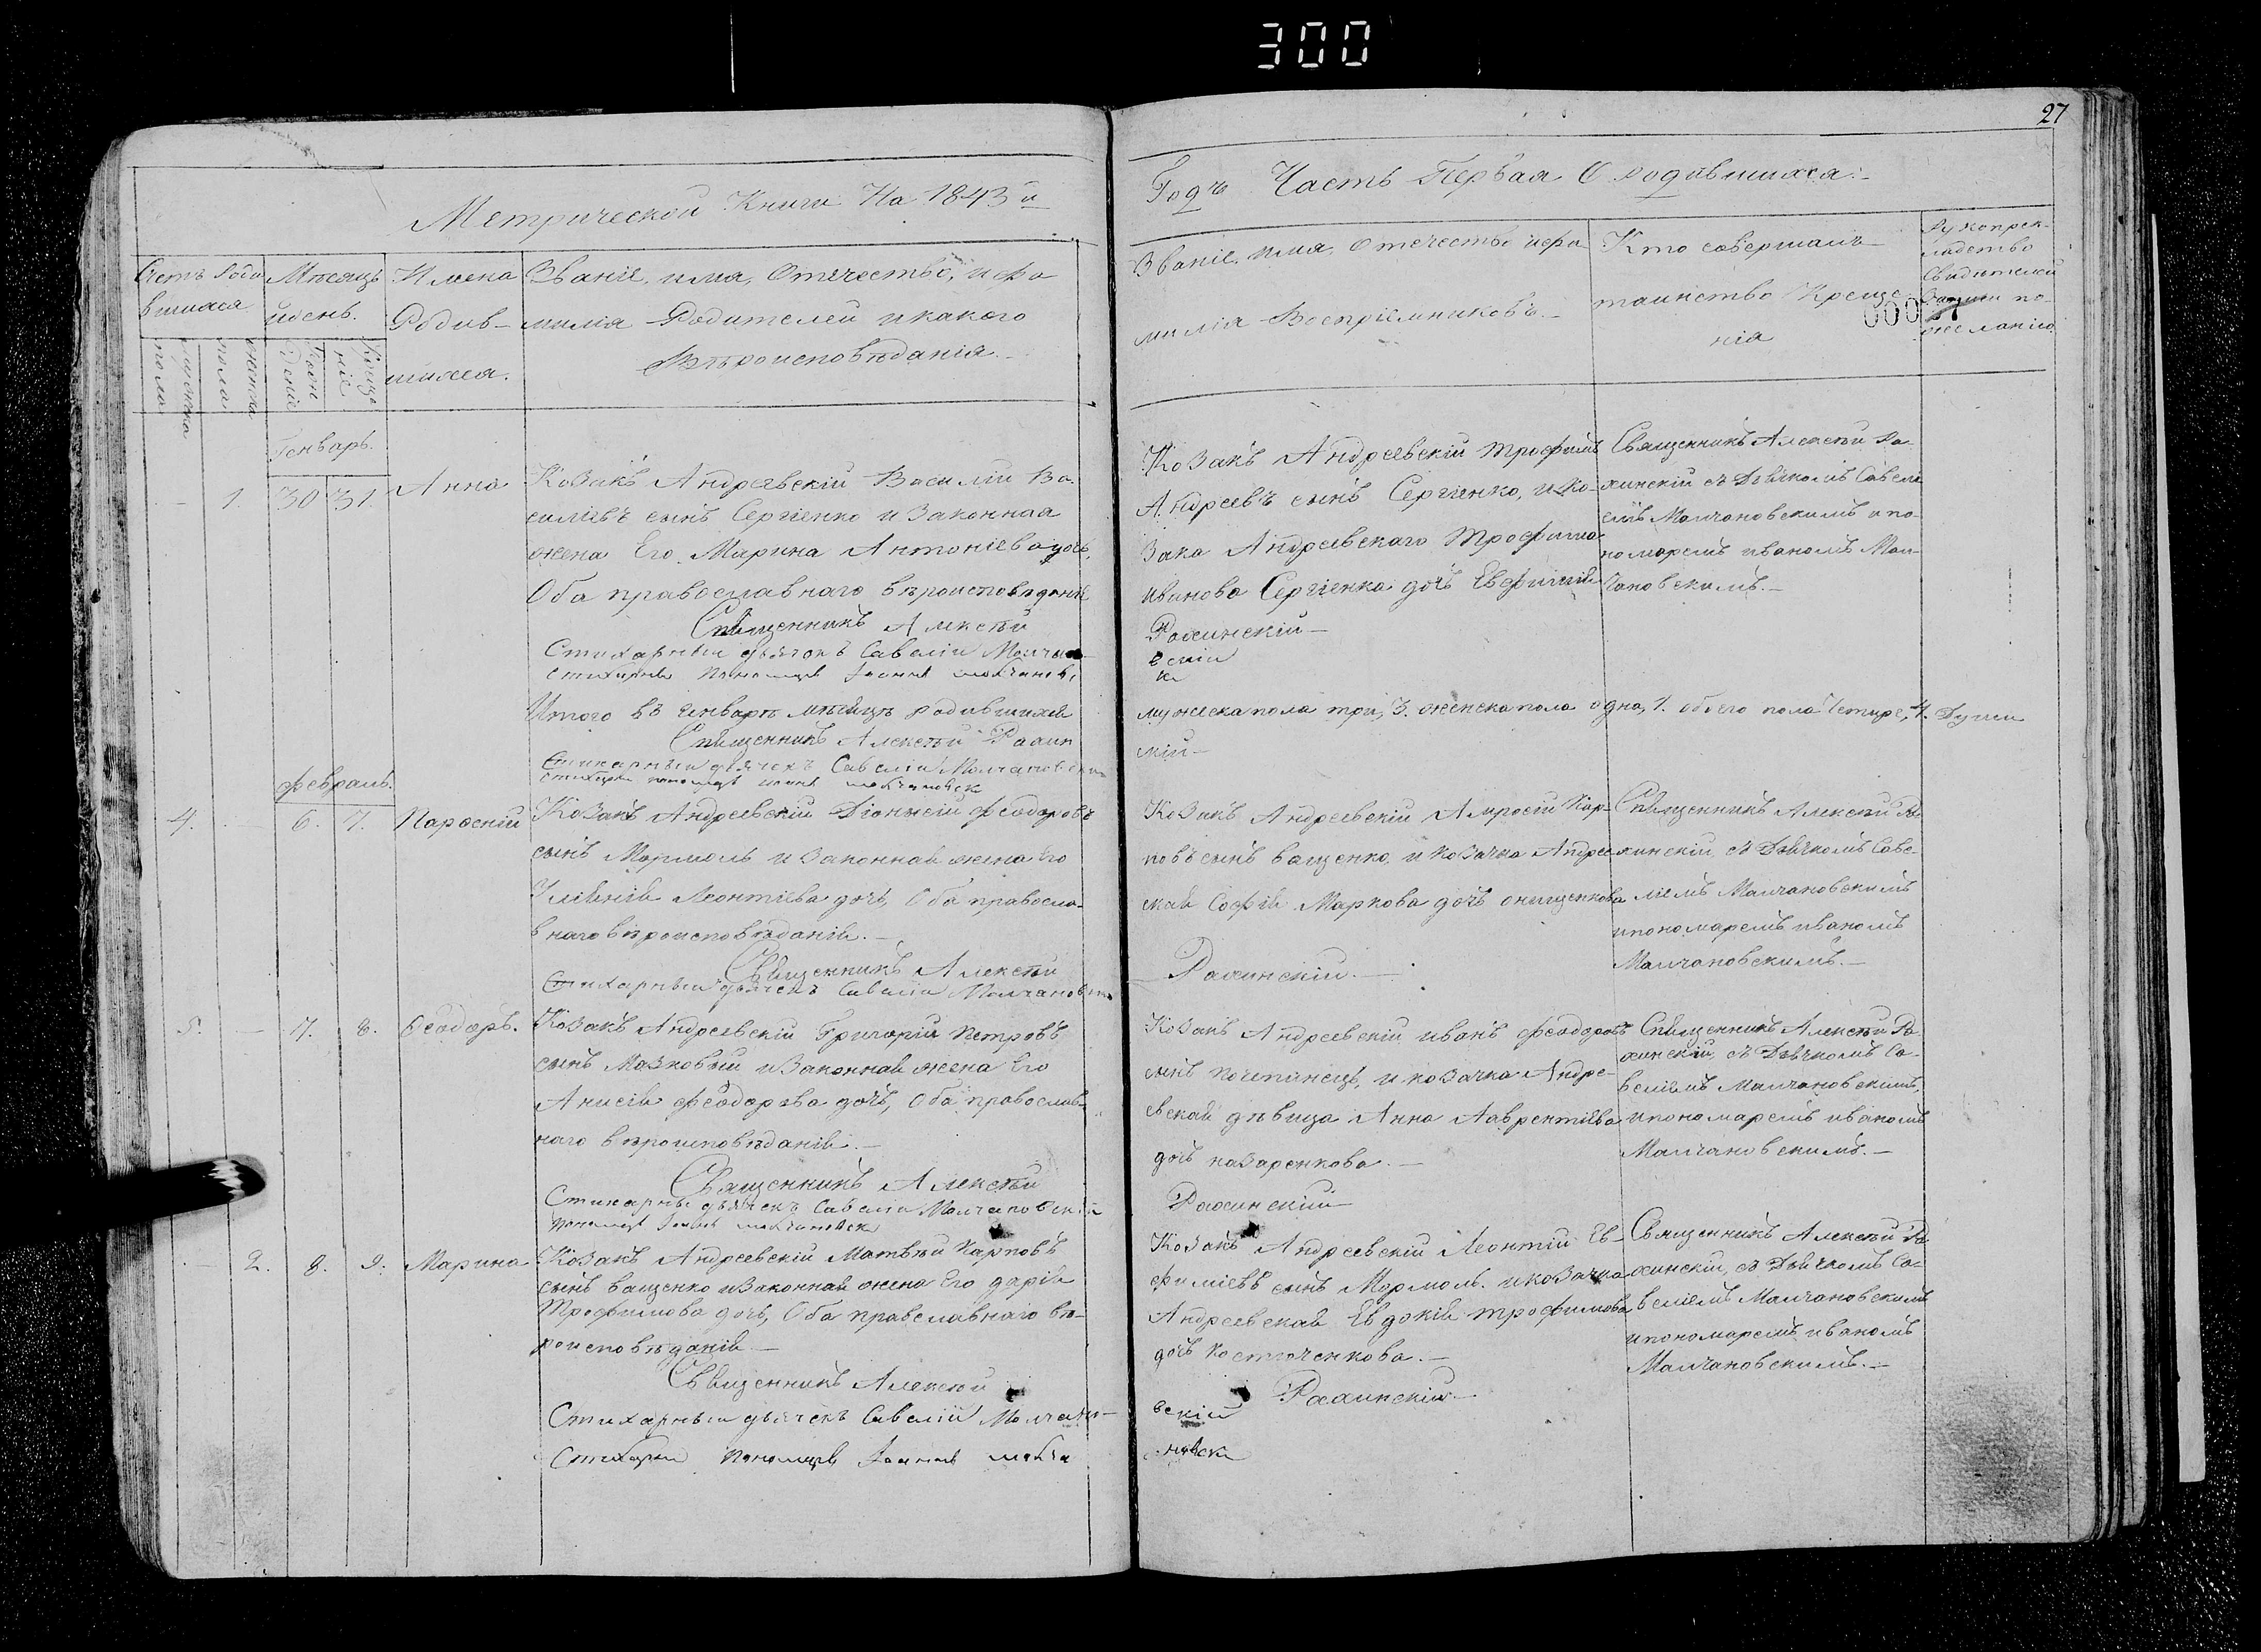 300
27
Метрической Книги На 1843й
Годъ Часть Первая О родившихся:
Счетъ Роди
вшихся
мужеска
пола
женска
пола
Мѣсяцъ
и день.
Рож
деніе
Креще
ніе
Имена
Родив-
шихся.
Званіе, имя, Отечество, и фа
милія Родителей и какого
Вѣроисповѣданія.
Званіе, имя, Отечество и фа
милія Воспріемниковъ.
Кто совершалъ
таинство Креще-
нія
Рукоприк-
ладство
свидѣтелей
записи по-
желанію
Генварь.
1. 30 31. Анна
Козакъ Андреевскій Василій Ва-
силіевъ сынъ Сергіенко и Законная
жена Его Марина Антоніева дочь,
Оба православнаго вѣроисповѣданія
Священникъ Алексѣй
Стихарный дьячокъ Савелій Молчано
Стихарный Пономарь Іоаннъ
Козакъ Андреевскій Трофимъ
Андреевъ сынъ Сергіенко, и Ко-
зака Андреевскаго Трофима
Иванова Сергіенка дочь Евфимія
Рахинскій
вскій
Священникъ Алексѣй Ра-
хинскій съ Дьячкомъ Савелі
емъ Молчановскимъ и по-
номаремъ Иваномъ Мол-
чановскимъ.
Итого въ Генварѣ мѣсяцѣ родившихся
мужеска пола три, 3. женска пола одна, 1. обоего пола Четыре, 4. Души
Священникъ Алексѣй Рахин
скій
Стихарный дьячекъ Савелій Молчановскі
Февраль.
4. 6. 7. Парѳеній
Козакъ Андреевскій Діонисій Феодоровъ
сынъ Мормоль и Законная жена Его
Уліянія Леонтіева дочь, Оба правосла-
внаго вѣроисповѣданія.
Священникъ Алексѣй
Стихарный дьячекъ Савелій Молчанов
Козакъ Андреевскій Амросій Кар-
повъ сынъ Ващенко и Козачка Андрее
ская Софія Маркова дочь Онищенкова
Рахинскій.
Священникъ Алексѣй Ра
хинскій, съ Дьячкомъ Саве-
ліемъ Молчановскимъ
и пономаремъ Иваномъ
Молчановскимъ.
5. 7. 8. Ѳеодоръ.
Козакъ Андреевскій Григорій Петровъ
сынъ Мазковый и Законная жена Его
Анисія Феодорова дочь, Оба православ-
наго вѣроисповѣданія.
Священникъ Алексѣй
Стихарны дьячекъ Савелій Молчановскій
Козакъ Андреевскій Иванъ Феодоровъ
сынъ Почепинецъ, и козачка Андре-
евская дѣвица Анна Лаврентіева
дочь Назаренкова.
Рахинскій
Священникъ Алексѣй Ра
хинскій, съ Дьячкомъ Са-
веліемъ Молчановскимъ,
и пономаремъ Иваномъ
Молчановскимъ.
2. 8. 9. Марина
Козакъ Андреевскій Матвѣй Карповъ
сынъ Ващенко и Законная жена Его Дарія
Трофимова дочь, Оба православнаго вѣ-
роисповѣданія
Священникъ Алексѣй
Стихарный дьячекъ Савелій Молчано-
Стихарны Пономарь Іоаннъ молча
Козакъ Андреевскій Леонтій Ев-
фиміевъ сынъ Мормоль. и козачка
Андреевская Евдокія Трофимова
дочь Костюченкова.
Рахинскій
вскій
новск
Священникъ Алексѣй Ра
хинскій, съ Дьячкомъ Са-
веліемъ Молчановскимъ
и пономаремъ Иваномъ
Молчановскимъ.